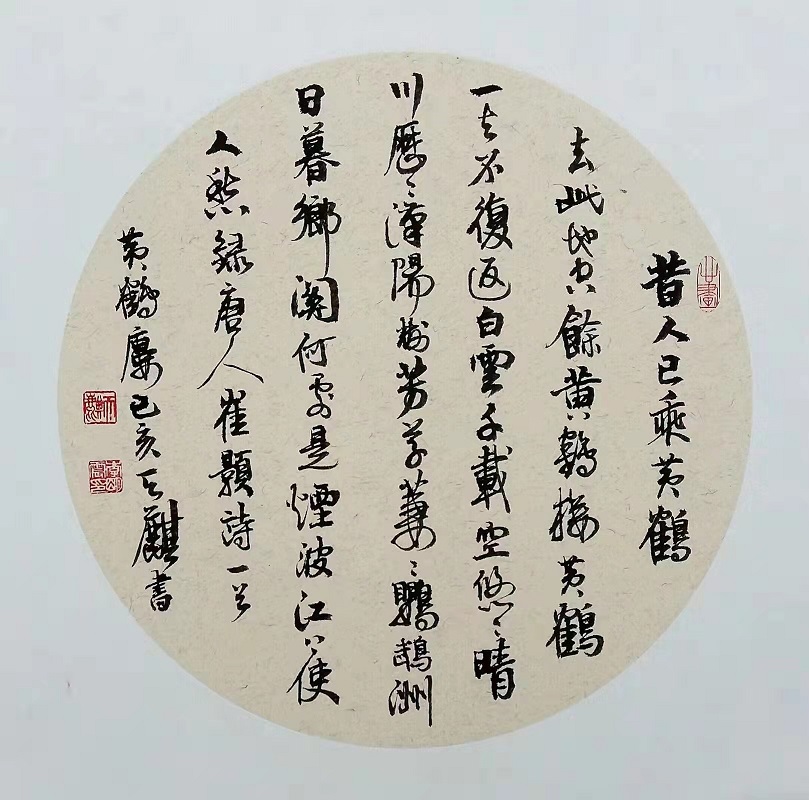 昔人已乘黄鶴
去此地空餘黄鶴楼黄鶴
一去不復返白雲千載空悠〻晴
川歷〻漢陽樹芳草萋〻鸚鵡洲
日暮鄉關何處是煙波江上使
人愁録唐人崔顥詩一首
黄鶴樓己亥天麒書